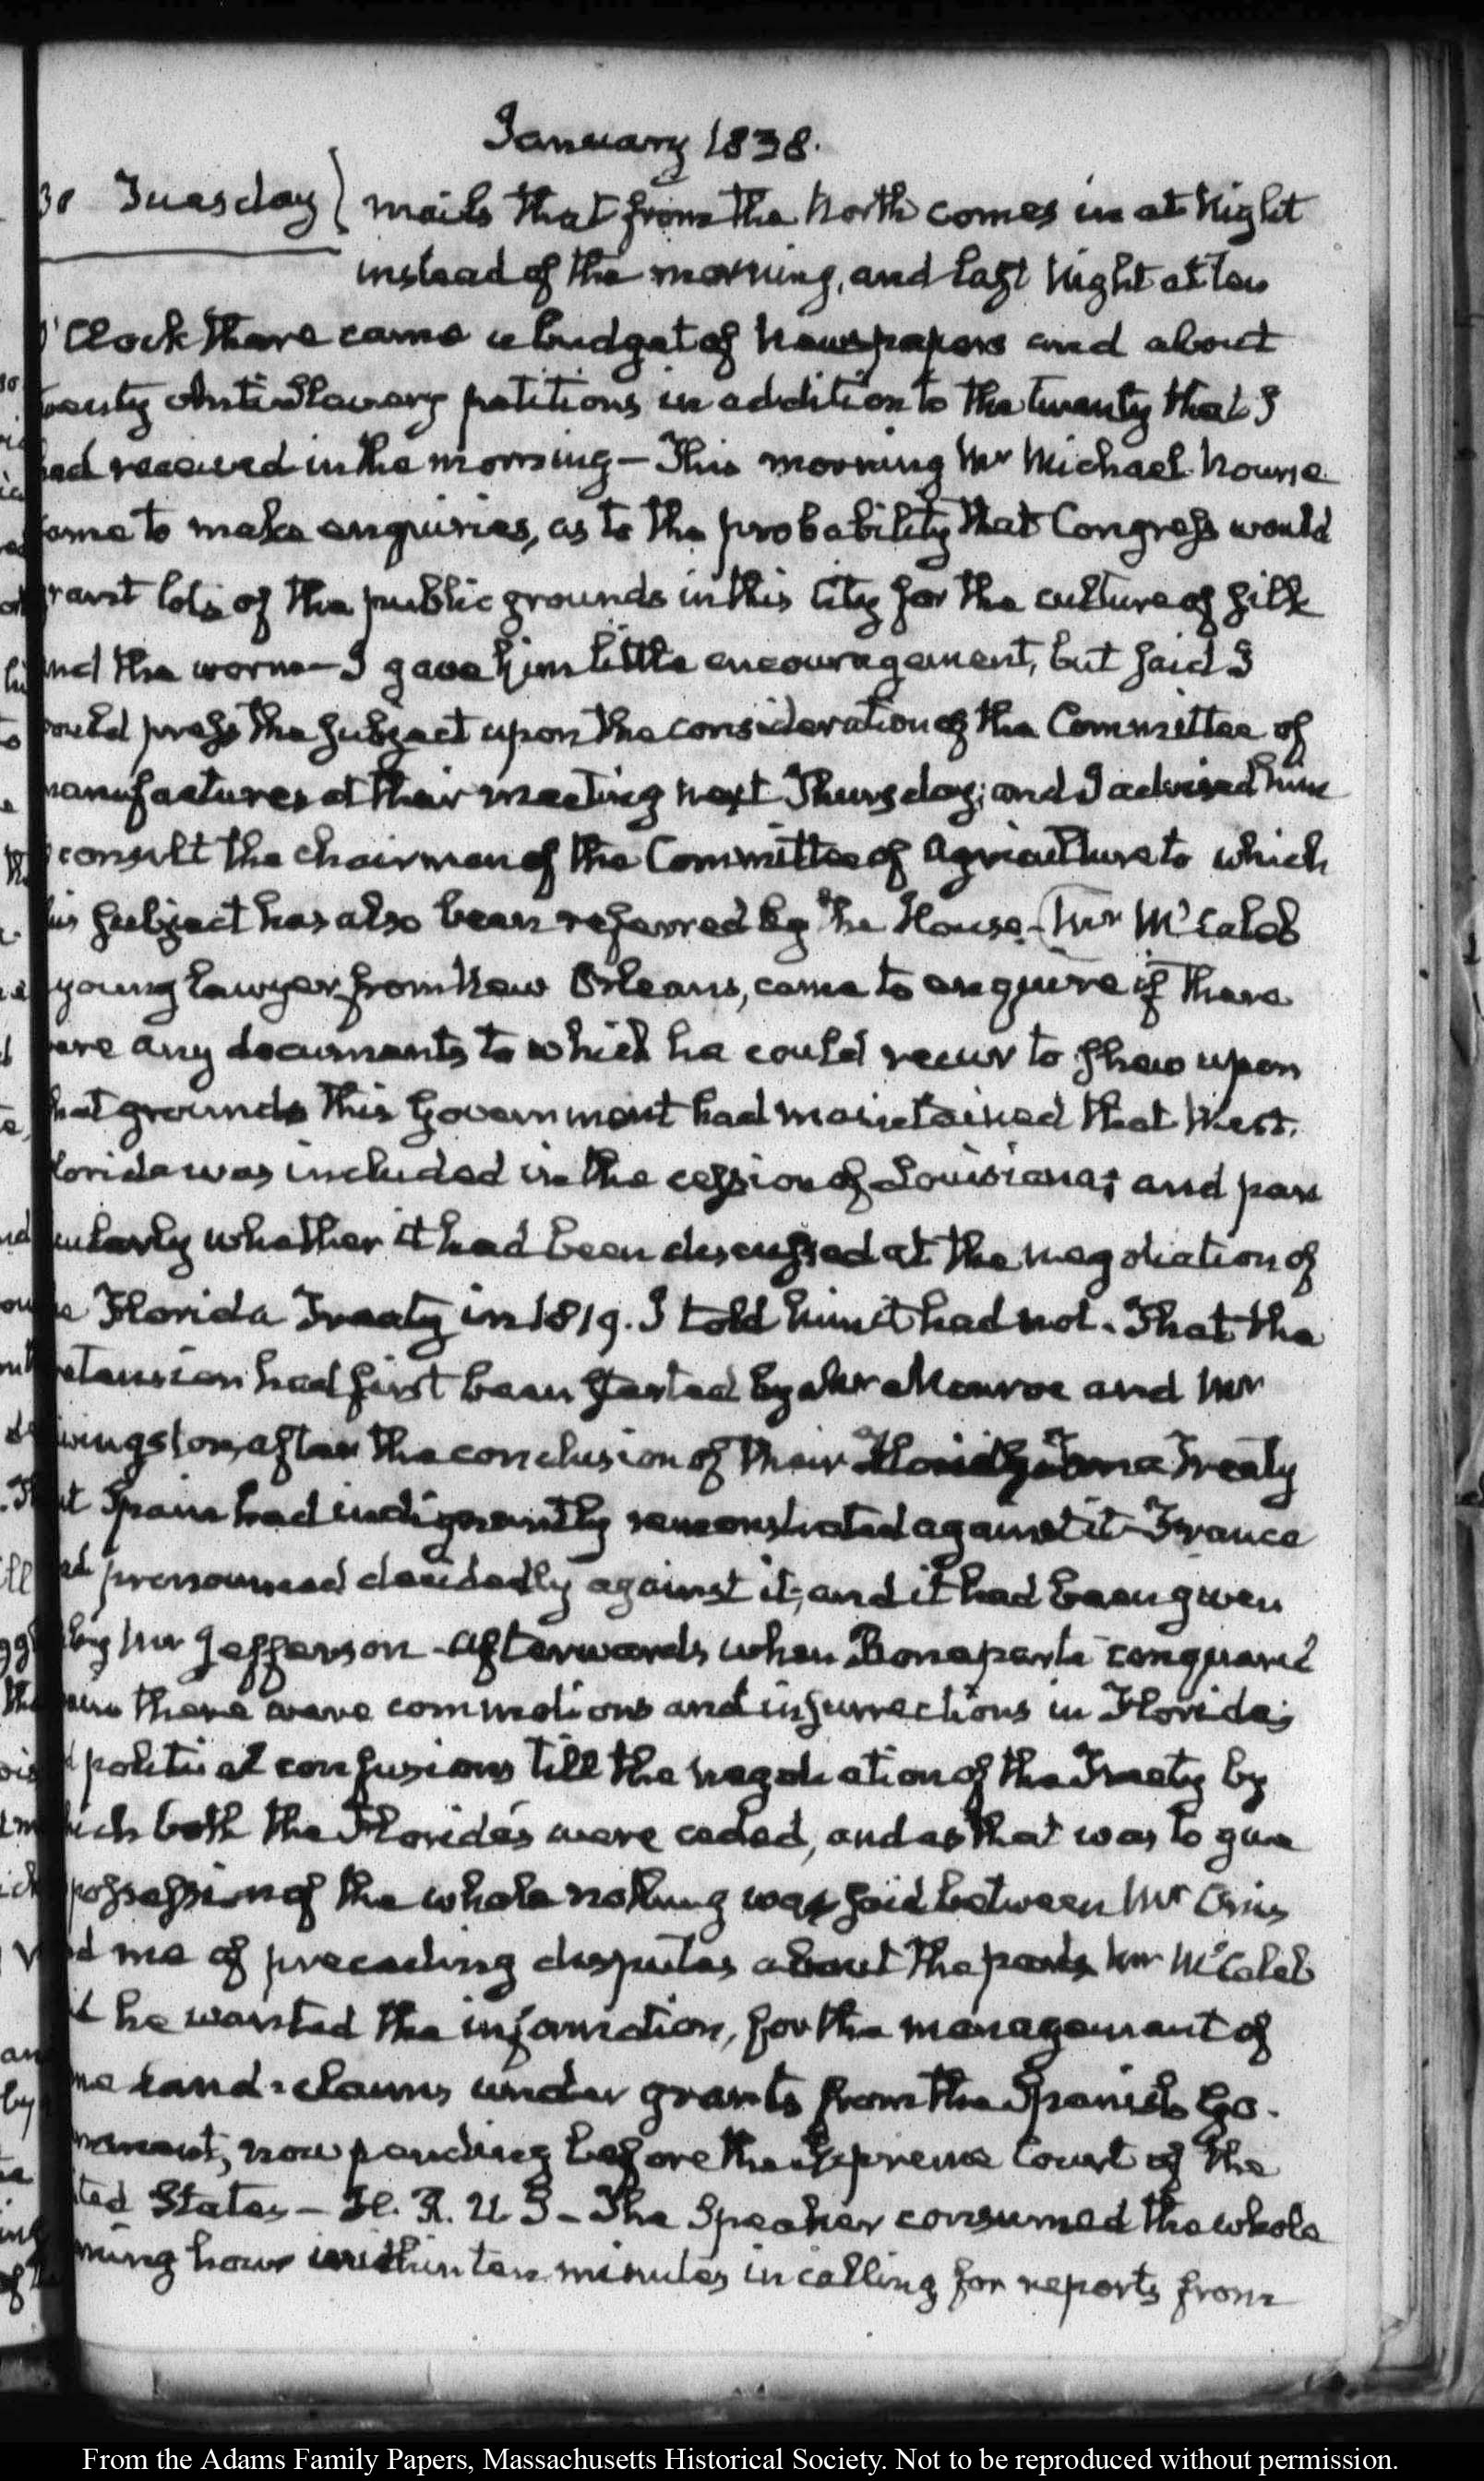 January 1838.
30 Tuesday } mails that from the North comes in at Night
instead of the morning, and last Night at ten
O'Clock there came a budget of Newspapers and about
twenty Antislavery petitions in addition to the twenty that I
had received in the morning — This morning Mr Michael Nourse
came to make enquiries, as to the probability that Congress would
grant lots of the public grounds in this City for the culture of silk
and the worm — I gave him little encouragement, but said I
would press the subject upon the consideration of the Committee of
manufactures at their meeting next Thursday; and I advised him
consult the chairman of the Committee of Agriculture to which
this subject has also been referred by the House. (Mr McCaleb
young Lawyer from New Orleans, came to enquire if there
were any documents to which he could recur to shew upon
what grounds this Government had maintained that West.
Florida was included in the cession of Louisiana; and par
ticularly whether it had been discussed at the negotiation of
the Florida Treaty in 1819. I told him it had not. That the
pretension had first been started by Mr Monroe and Mr
Livingston, after the conclusion of their Treaty
that Spain had indignantly remonstrated against it — France
had pronounced decidedly against it; and it had been given
by Mr Jefferson — Afterwards when Bonaparte conquered
Spain there were commotions and insurrections in Florida;
political confusions till the negotiation of the Treaty by
which both the Florida's were ceded, and as that was to give
possession of the whole nothing was said between Mr Onis
and me of preceding disputes about the parts Mr McCaleb
he wanted the information, for the management of
some land-claims under grants from the Spanish Go-
vernment, now pending before the Supreme Court of the
United States — H. R. U. S — The Speaker consumed the whole
morning hour within ten minutes in calling for reports from
From the Adams Family Papers, Massachusetts Historical Society. Not to be reproduced without permission.